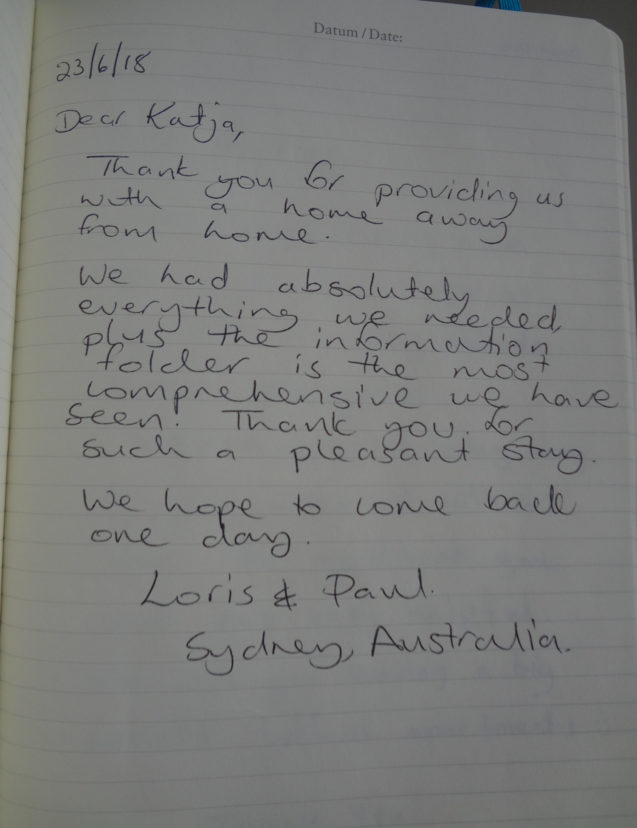 Datum / Date:
23/6/18
Dear Katja,
Thank you for providing us
with a home away
from home.
We had absolutely
everything we needed
plus the information
folder is the most
comprehensive we have
seen! Thank you for
such a pleasant stay.
We hope to come back
one day.
Loris & Paul.
Sydney, Australia.